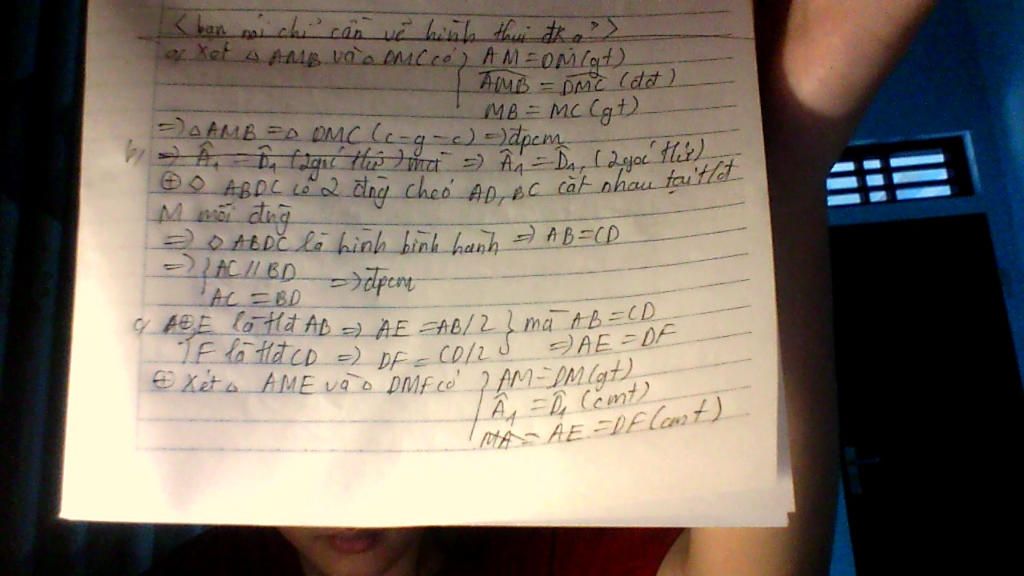 <bạn nói chỉ cần vẽ hình thui đk ạ?>
a, Xét △ AMB và △ DMC có } AM = DM (gt)
AMB = DMC (dđ)
MB = MC (gt)
=> △ AMB = △ DMC (c-g-c) => đpcm
b, => Â1 = D̂1 (2góc t/ứ) mà => Â1 = D̂1, (2góc t/ứ)
⊕ ◇ ABDC có 2 đng chéo AD, BC cắt nhau tại t/đ
M mỗi đng
=> ◇ ABDC là hình bình hành => AB = CD
=> { AC // BD => đpcm
AC = BD
c, E là t/đ AB => AE = AB/2 } mà AB = CD
F là t/đ CD => DF = CD/2 => AE = DF
⊕ Xét △ AME và △ DMF có } AM = DM (gt)
Â1 = D̂1 (cmt)
MA = AE = DF (cmt)